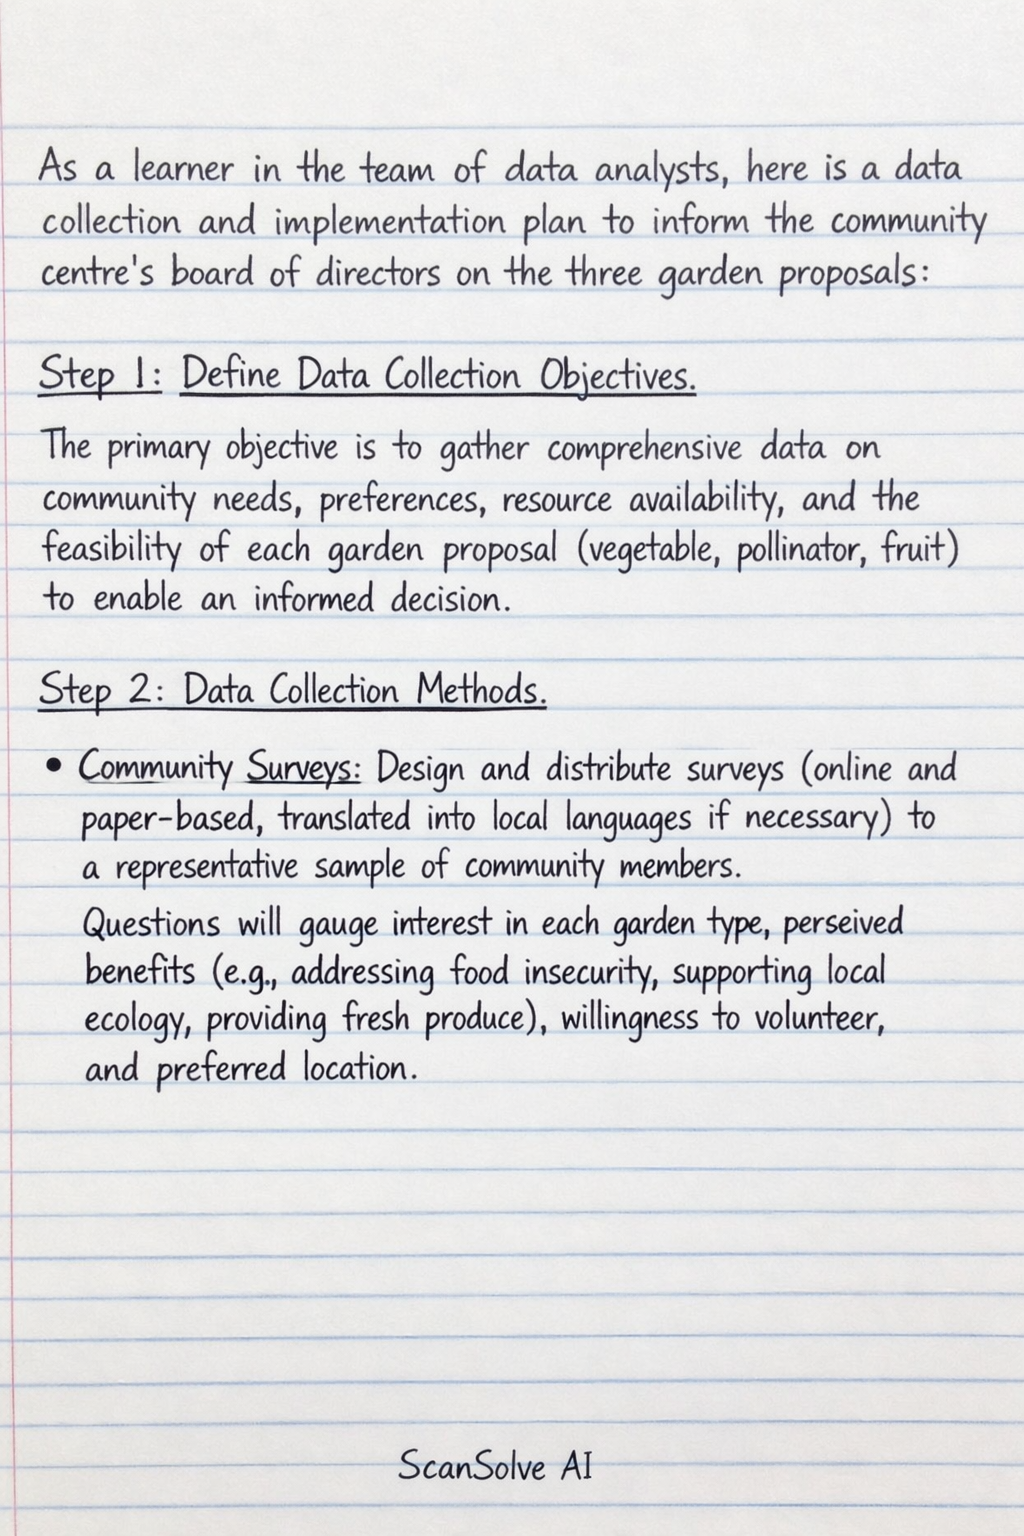 As a learner in the team of data analysts, here is a data
collection and implementation plan to inform the community
centre's board of directors on the three garden proposals:
Step 1: Define Data Collection Objectives.
The primary objective is to gather comprehensive data on
community needs, preferences, resource availability, and the
feasibility of each garden proposal (vegetable, pollinator, fruit)
to enable an informed decision.
Step 2: Data Collection Methods.
• Community Surveys: Design and distribute surveys (online and
paper-based, translated into local languages if necessary) to
a representative sample of community members.
Questions will gauge interest in each garden type, perseived
benefits (e.g., addressing food insecurity, supporting local
ecology, providing fresh produce), willingness to volunteer,
and preferred location.
ScanSolve AI